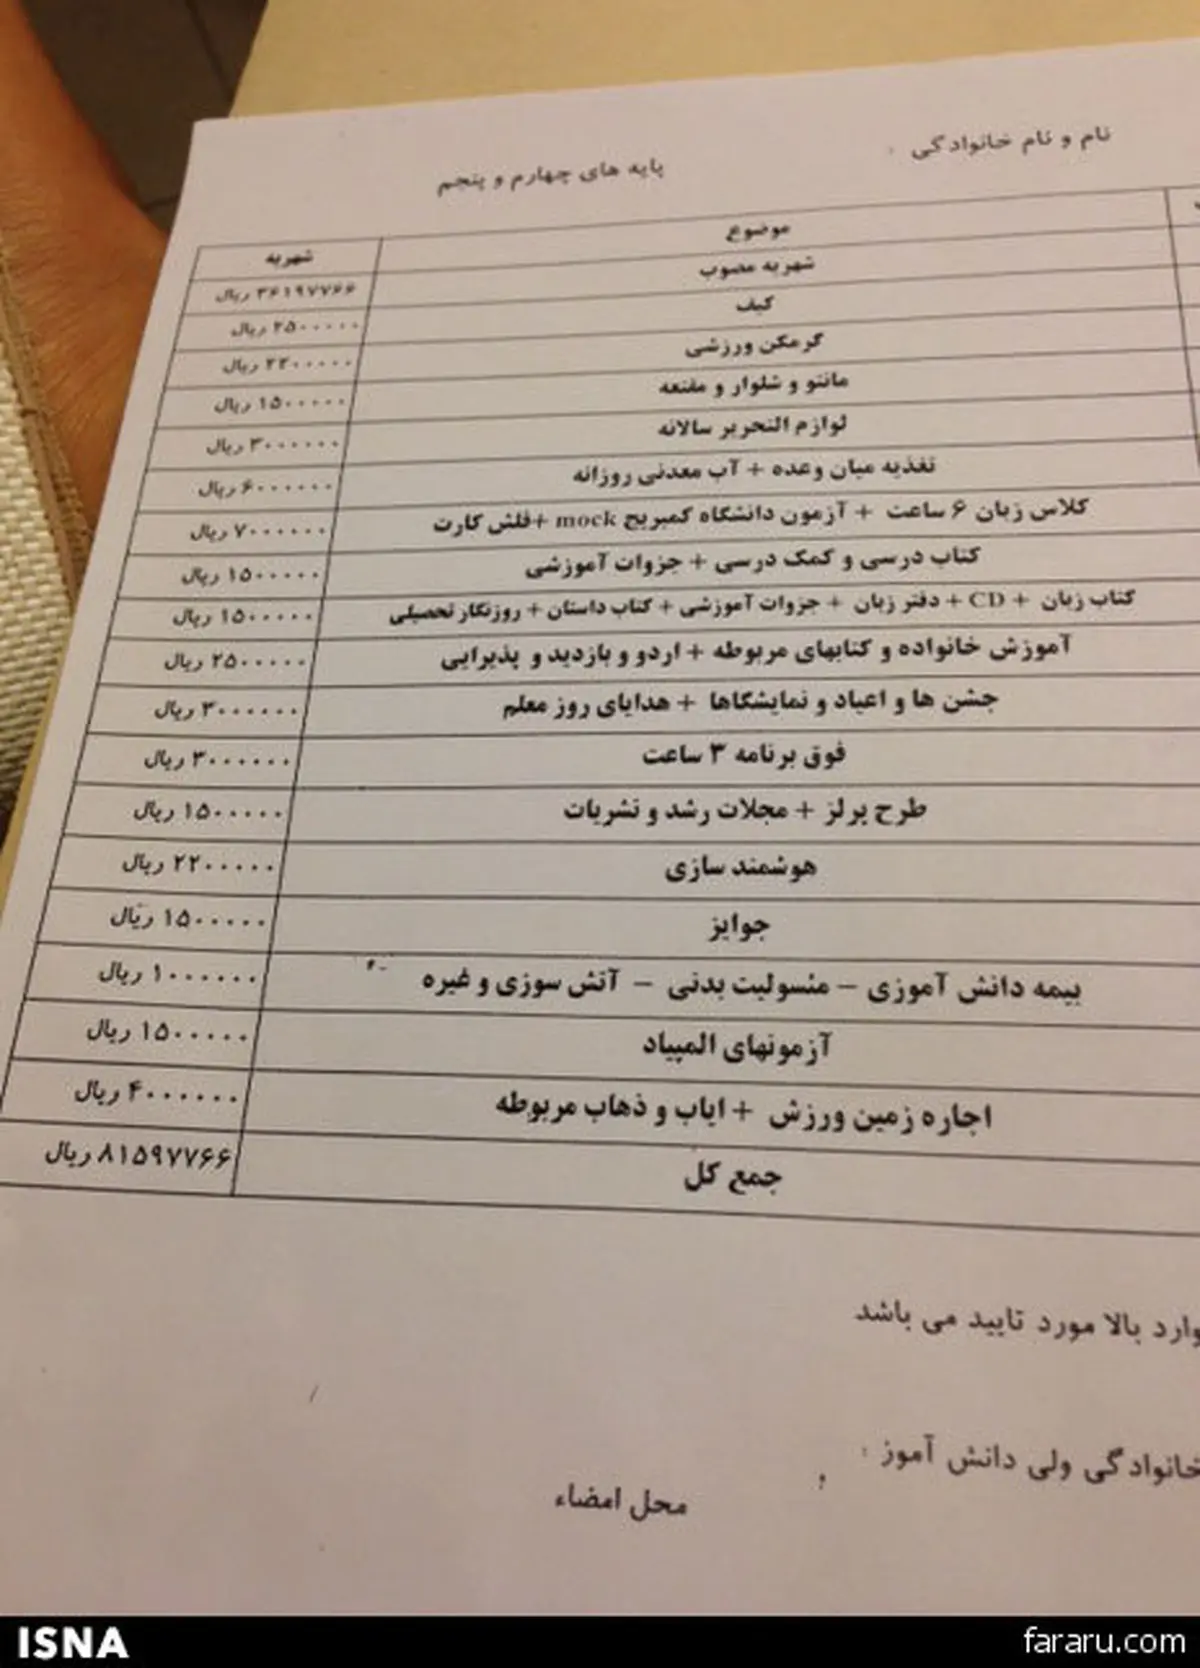 نام و نام خانوادگی
پایه های چهارم و پنجم
موضوع شهریه
شهریه مصوب ۳۶۱۹۷۷۶۶ ریال
کیف ۲۵۰۰۰۰۰ ریال
گرمکن ورزشی ۲۲۰۰۰۰۰ ریال
مانتو و شلوار و مقنعه ۱۵۰۰۰۰۰ ریال
لوازم التحریر سالانه ۳۰۰۰۰۰۰ ریال
تغذیه میان وعده + آب معدنی روزانه ۶۰۰۰۰۰۰ ریال
کلاس زبان ۶ ساعت + آزمون دانشگاه کمبریج mock +فلش کارت ۷۰۰۰۰۰۰ ریال
کتاب درسی و کمک درسی + جزوات آموزشی ۱۵۰۰۰۰۰ ریال
کتاب زبان + CD + دفتر زبان + جزوات آموزشی + کتاب داستان + روزنگار تحصیلی ۱۵۰۰۰۰۰ ریال
آموزش خانواده و کتابهای مربوطه + اردو و بازدید و پذیرایی ۲۵۰۰۰۰۰ ریال
جشن ها و اعیاد و نمایشگاها + هدایای روز معلم ۳۰۰۰۰۰۰ ریال
فوق برنامه ۳ ساعت ۳۰۰۰۰۰۰ ریال
طرح پرلز + مجلات رشد و نشریات ۱۵۰۰۰۰۰ ریال
هوشمند سازی ۲۲۰۰۰۰۰ ریال
جوایز ۱۵۰۰۰۰۰ ریال
بیمه دانش آموزی – مسولیت بدنی – آتش سوزی و غیره ۱۰۰۰۰۰۰ ریال
آزمونهای المپیاد ۱۵۰۰۰۰۰ ریال
اجاره زمین ورزش + ایاب و ذهاب مربوطه ۴۰۰۰۰۰۰ ریال
جمع کل ۸۱۵۹۷۷۶۶ ریال
وارد بالا مورد تایید می باشد
خانوادگی ولی دانش آموز :
محل امضاء
ISNA
fararu.com